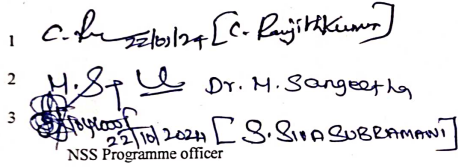 1 C. R 22/10/24 [C. Ranjithkumar]
2 M. S Dr. M. Sangeetha
3 22/10/2024 [S. SIVASUBRAMANI]
NSS Programme officer